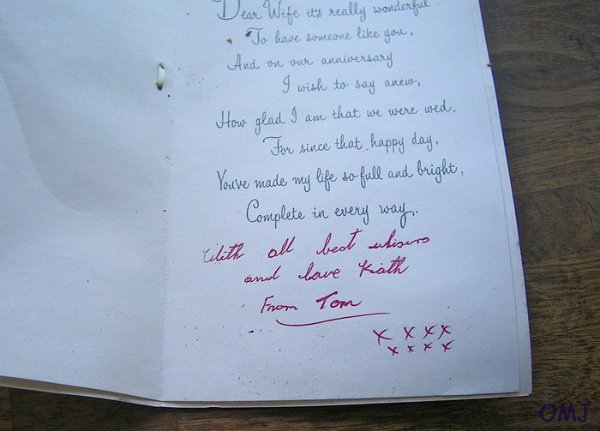 Dear Wife it's really wonderful
To have someone like you,
And on our anniversary
I wish to say anew,
How glad I am that we were wed,
For since that happy day,
You've made my life so full and bright,
Complete in every way.
With all best whisers
and love Kath
From Tom
x x x x
x x x x
OMJ